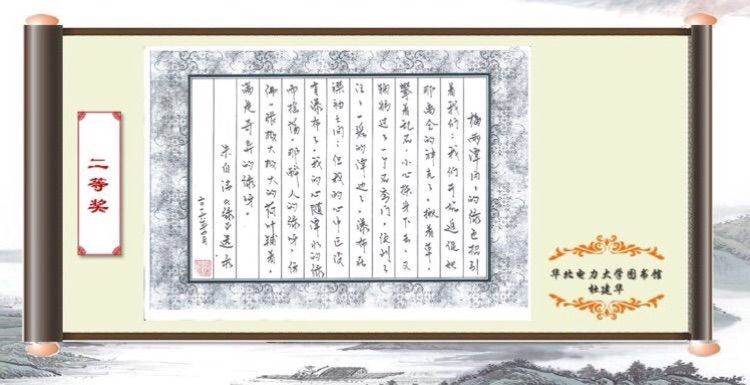 梅雨潭闪〻的绿色招引
着我们；我们开始追捉她
那离合的神光了。揪着草，
攀着乱石，小心探身下去，又
鞠躬过了一个石穹门，便到了
汪〻一碧的潭边了。瀑布在
襟袖之间；但我的心中已没
有瀑布了。我的心随潭水的绿
而摇荡。那醉人的绿呀，仿
佛一张极大极大的荷叶铺着，
满是奇异的绿呀。
朱自清《绿》选录
二等奖
华北电力大学图书馆
杜建华